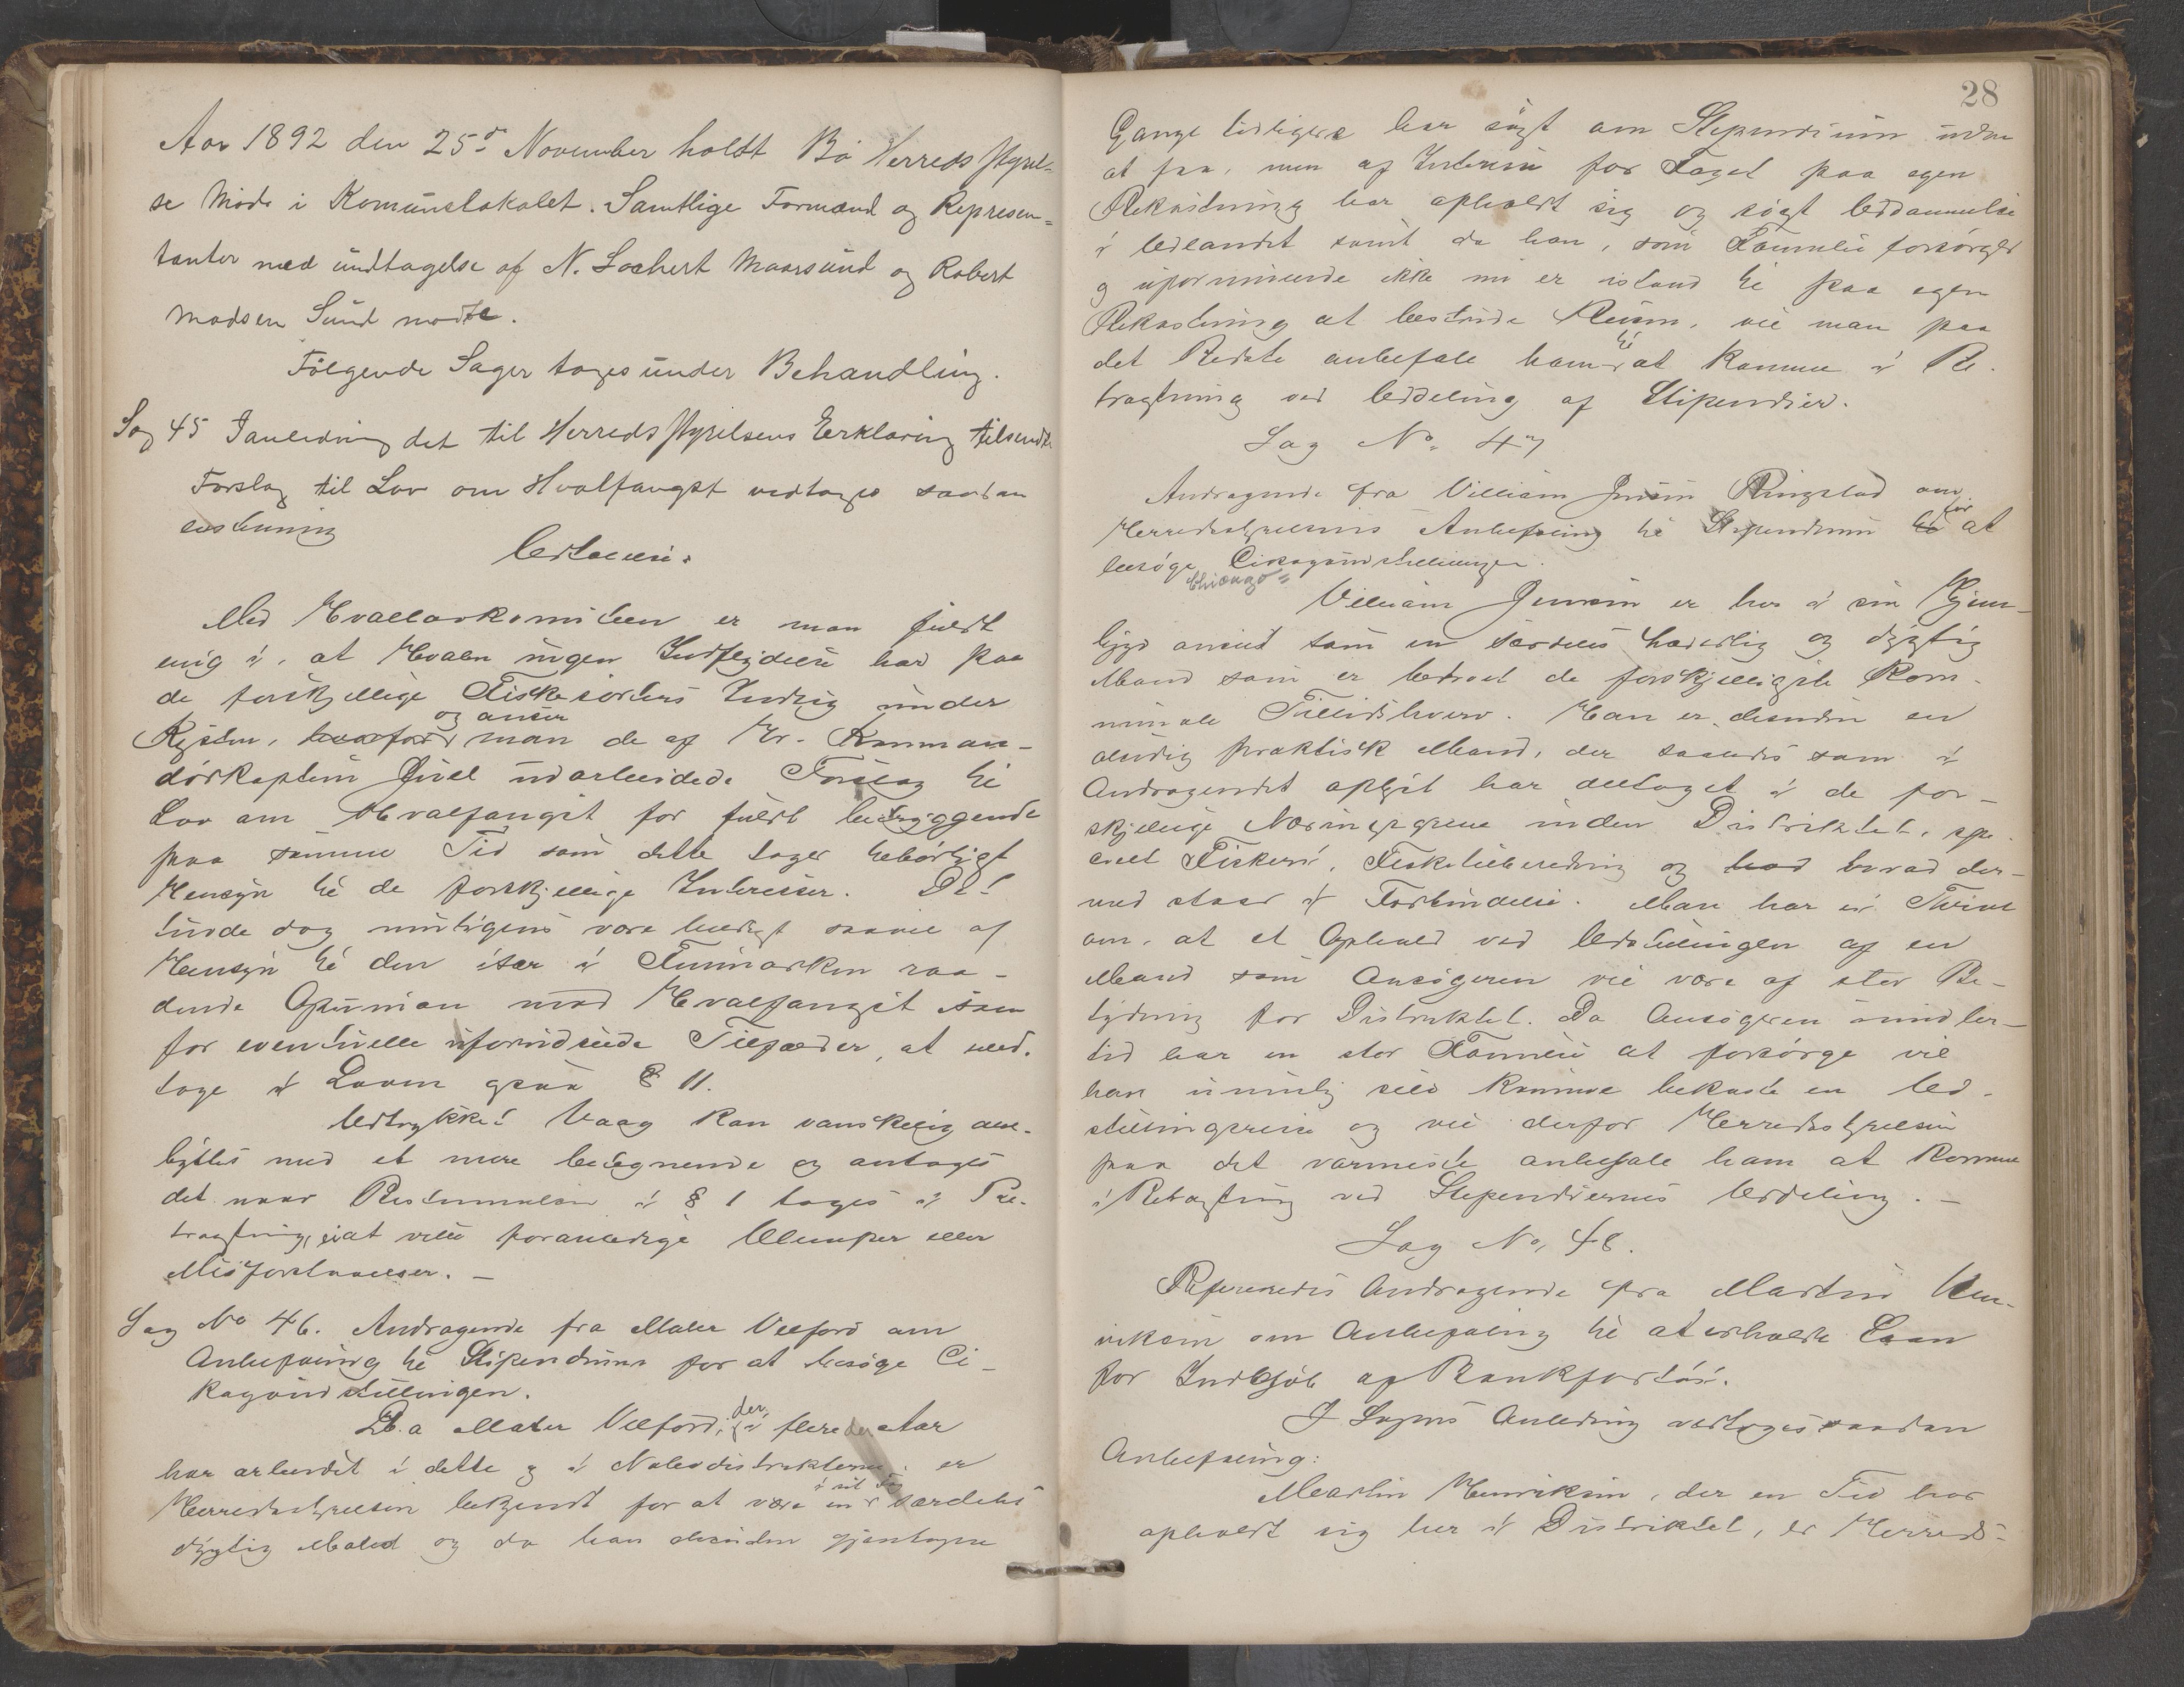 Aar 1892 den 25de November holdt Bø Herreds styrel-
se Møde i Komunelokalet. Samtlige Formænd og Represen-
tanter med undtagelse af N. Lochert Maarsund og Robert
Madsen Sund mødte.
Følgende Sager toges under Behandling.
Sag 45 I anledning det til Herreds styrelsens Eerklæring tilsendte
Forslag til Lov om Hvalfangst vedtoges saadan
enstemmig
Udtalelse:
Med Hvallovkomiteen er man fuldt
enig i, at Hvalen ingen Indflydelse har paa
de forskjellige Fiskesorters Indsig under
Kysten, hvorfor og anser man de af Hr. Komman-
dørkaptein Juel udarbeidede Forslag til
Lov om Hvalfangst for fuldt betryggende
paa samme Tid som dette tager tilbørligt
Hensyn til de forskjellige Interesser. Det
turde dog muligens være heldigt saavel af
Hensyn til den især i Finmarken raa-
dende Opinion mod Hvalfangst som
for eventuelle uforudseede Tilfælder, at med-
tage i Loven ogsaa § 11.
Udtrykket Vaag kan vanskelig om-
byttes med et mere betegnende og antages
det naar Bestemmelsen i § 1 tages i Be-
tragtning, ei at ville foranledige Ulemper eller
Misforstaaelser. —
Sag No 46. Andragende fra Maler Velford om
Anbefaling til Stipendium for at besøge Ci-
kagoudstillingen.
Da Maler Velford, der i flere Aar
har arbeidet i dette og i Nabodistrikterne, er
Herredsstyrelsen bekjendt for at være en i sit Fag særdeles
dygtig Maler og da han desuden gjentagne
28
Gange tidligere har søgt om Stipendium uden
at faa, men af Interesse for Faget paa egen
Bekostning har opholdt sig og søgt Uddannelse
i Udlandet samt da han, som Familieforsørger
og uformuende ikke nu er istand til paa egen
Bekostning at bestride Reisen, vil man paa
det Bedste anbefale ham til at komme i Be-
tragtning ved Uddeling af Stipendier.
Sag No. 47
Andragende fra Villiam Jensen Ringstad om
Herredsstyrelsens Anbefaling til Stipendium til for at
besøge Cikagoudstillingen.
Chicago =
Villiam Jensen er her i sin Hjem-
bygd anseet som en særdeles hæderlig og dygtig
Mand som er betroet de forskjelligste Kom-
munale Tillidshverv. Han er desuden en
alsidig praktisk Mand, der saaledes som i
Andragendet oplyst har deltaget i de for-
skjellige Næringsgrene inden Distriktet, spe-
cielt Fiskeri, Fisketilberedning og hvad der-
med staar i Forbindelse. Man har ei Tvivl
om, at et Ophold ved Udstillingen af en
Mand som Ansøgeren vil være af stor Be-
tydning for Distriktet. Da Ansøgeren imidler-
tid har en stor Familie at forsørge vil
han umulig selv kunne bekoste en Ud-
stillingsreise og vil derfor Herredsstyrelsen
paa det varmeste anbefale ham at komme
i Betragtning ved Stipendiernes Uddeling. —
Sag No. 48.
Refereredes Andragende fra Martin Hen-
riksen om Anbefaling til at erholde Laan
for Indkjøb af Bankfartøi.
I Sagens Anledning vedtoges saadan
Anbefaling:
Martin Henriksen, der en Tid har
opholdt sig her i Distriktet, er Herreds-